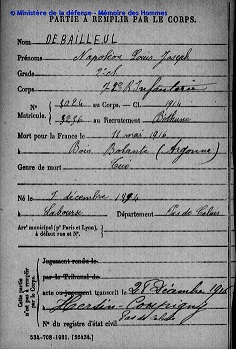 © Ministère de la défense - Mémoire des Hommes
PARTIE A REMPLIR PAR LE CORPS.
Nom DEBAILLEUL
Prénoms Napoléon Louis Joseph
Grade
Corps 72e R Infanterie
N° 3024 au Corps. — Cl. 1914
Matricule. 3236 au Recrutement Béthune
Mort pour la France le 11 mai 1916
à Bois Bolante (Argonne)
Genre de mort Tué
Né le 7 décembre 1894
à Labourse Département Pas de Calais
Arrt municipal (pr Paris et Lyon),
à défaut rue et N°.
Cette partie
n'est pas à remplir
par le Corps.
Jugement rendu le
par le Tribunal de
acte ou jugement transcrit le 28 Décembre 1916
à Hersin-Coupigny
Pas de Calais
N° du registre d'état civil
534-708-1921. [26434.]